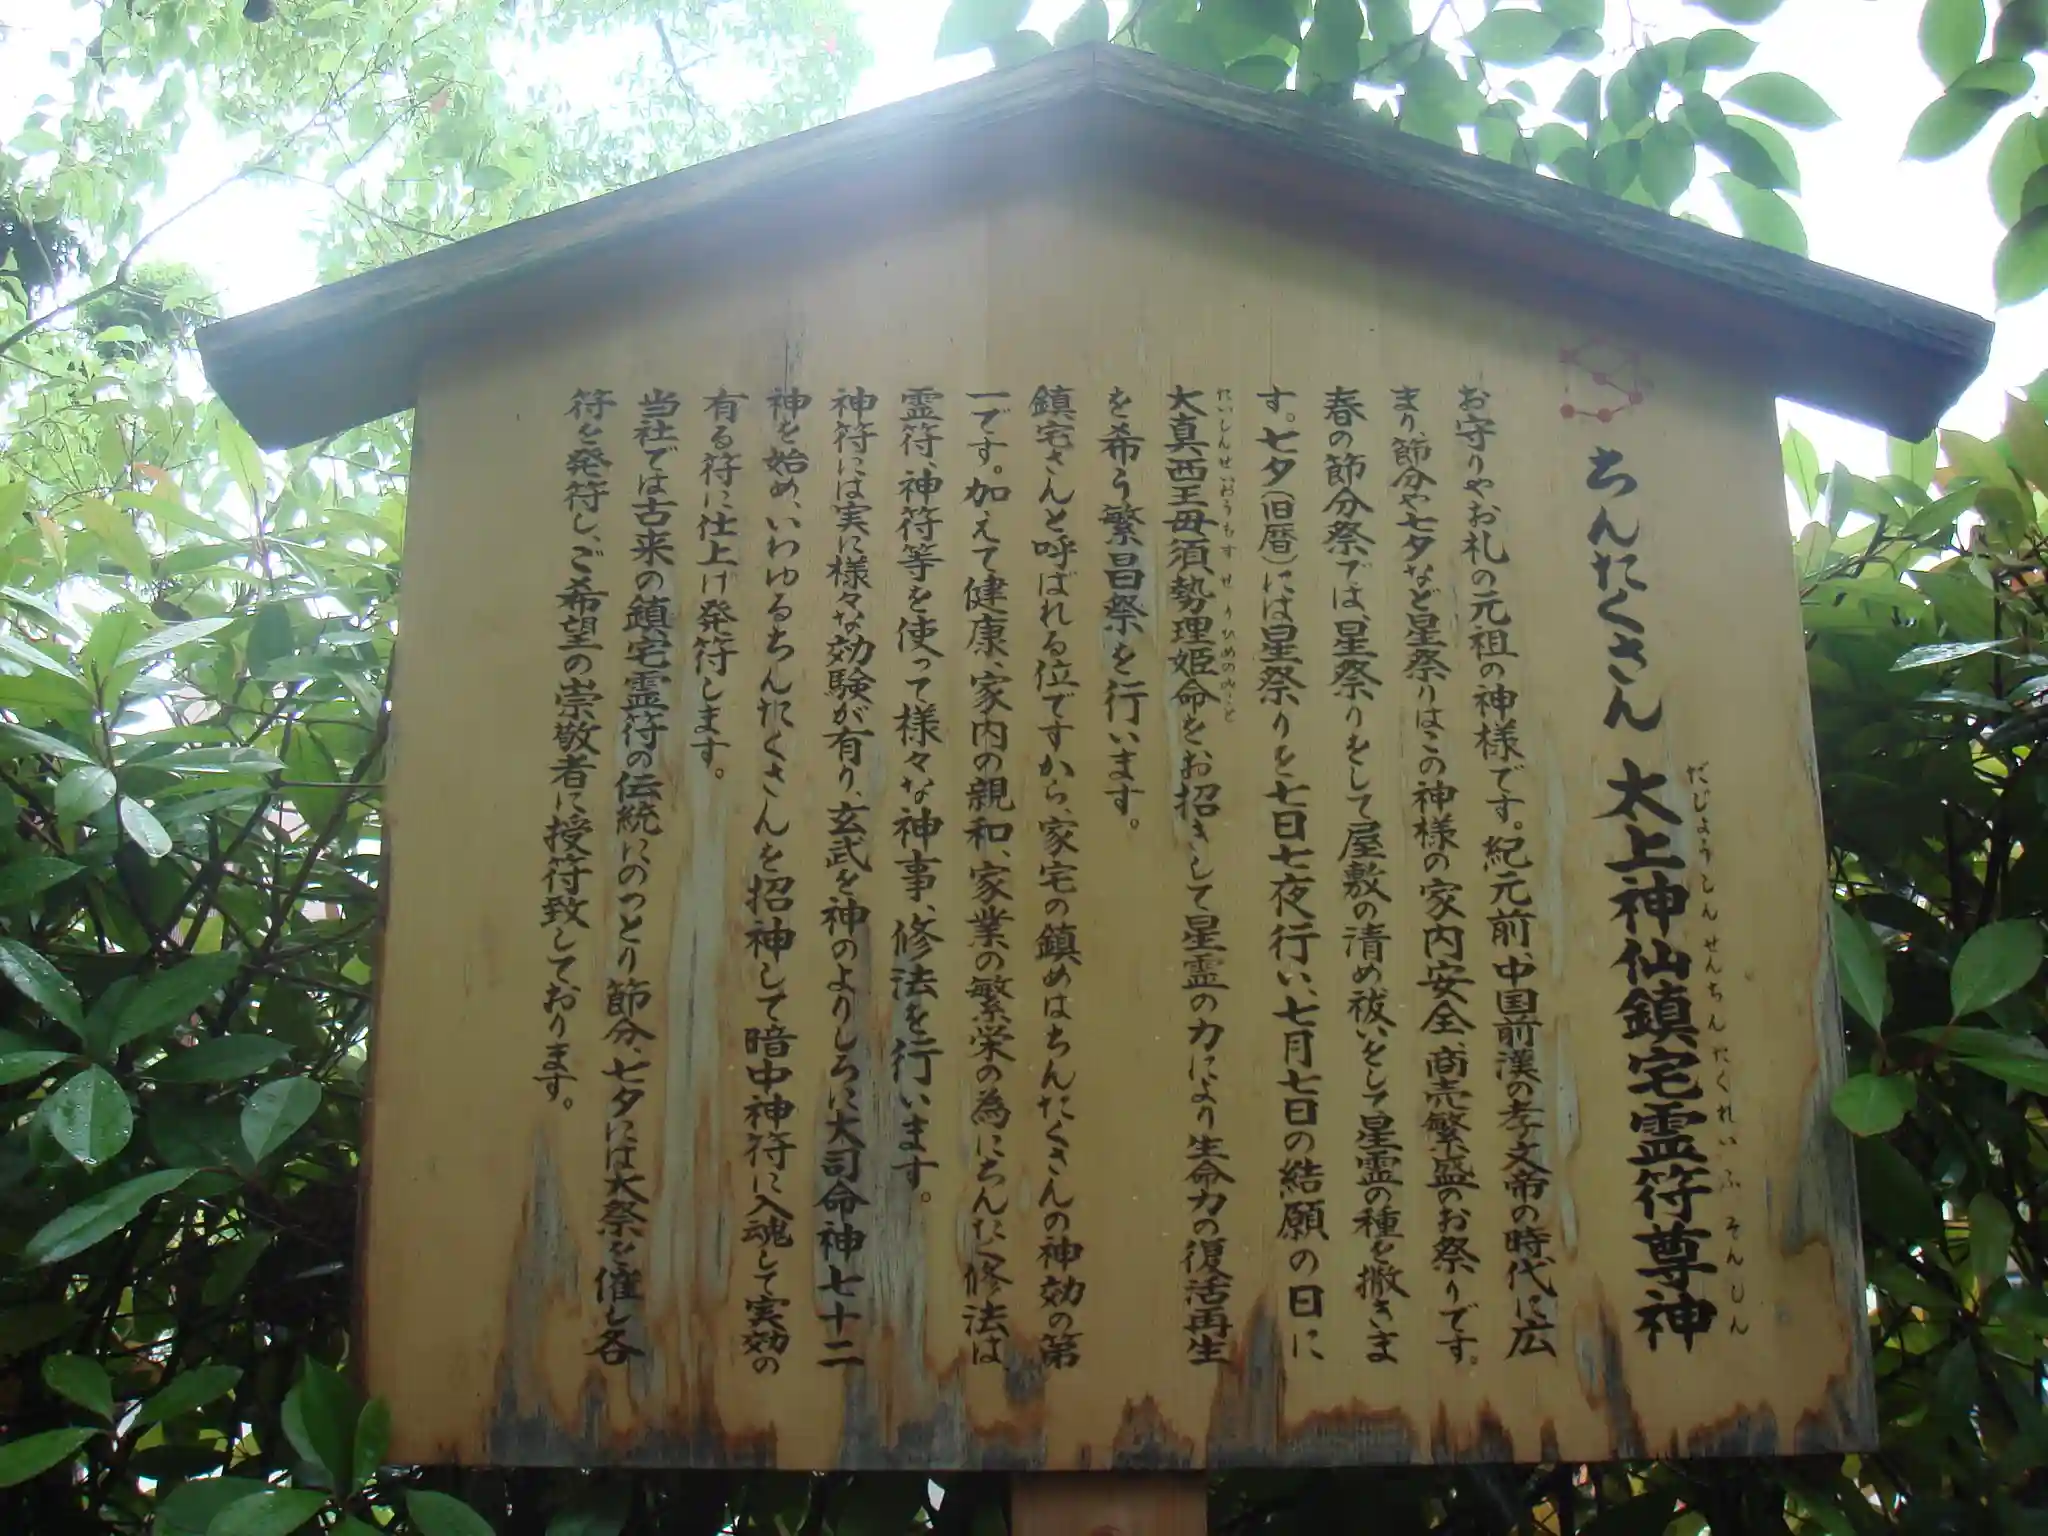 ちんたくさん 太上神仙鎮宅霊符尊神
だじょうしんせんちんたくれいふそんじん
お守りやお札の元祖の神様です。紀元前、中国前漢の孝文帝の時代に広
まり、節分や七夕など星祭りはこの神様の家内安全、商売繁盛のお祭りです。
春の節分祭では、星祭りをして屋敷の清め祓いをして星霊の種を撒きま
す。七夕(旧暦)には星祭りを七日七夜行い、七月七日の結願の日に
たいしんせいおうもすせりひめのみこと
大真西王母須勢理姫命をお招きして星霊の力により生命力の復活再生
を希う繁昌祭を行います。
鎮宅さんと呼ばれる位ですから、家宅の鎮めはちんたくさんの神効の第
一です。加えて健康、家内の親和、家業の繁栄の為にちんたく修法は
霊符、神符等を使って様々な神事、修法を行います。
神符には実に様々な効験が有り、玄武を神のよりしろに大司命神七十二
神を始め、いわゆるちんたくさんを招神して暗中神符に入魂して実効の
有る符に仕上げ発符します。
当社では古来の鎮宅霊符の伝統にのっとり節分、七夕には大祭を催し各
符を発符し、ご希望の崇敬者に授符致しております。